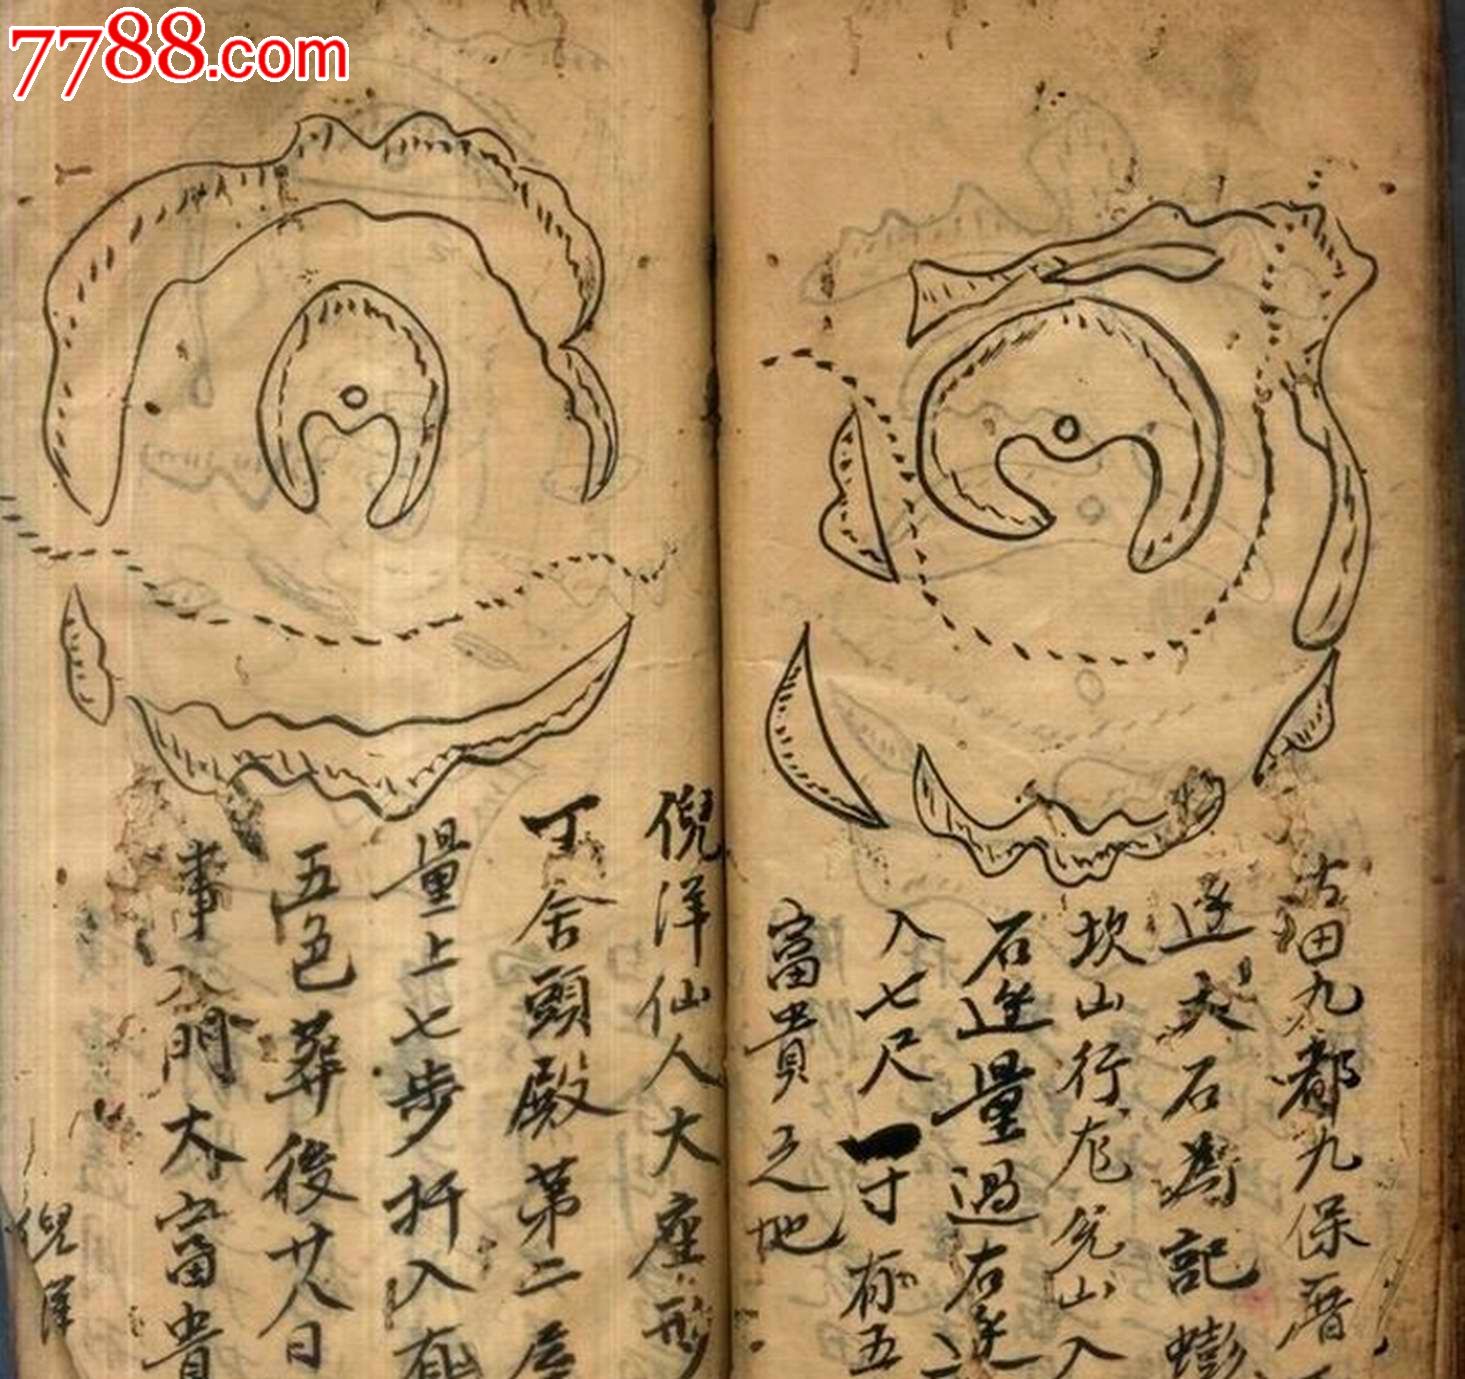 7788.com
古田九都九保厝
边大石為記蟛
坎山行龙兌山入
石邊量過右边
入七尺一寸有五
富貴之地
倪洋仙人大座形
丁舍頭殿第二
量上七步扦入有
五色葬後廿八日
事入門大富貴
倪洋